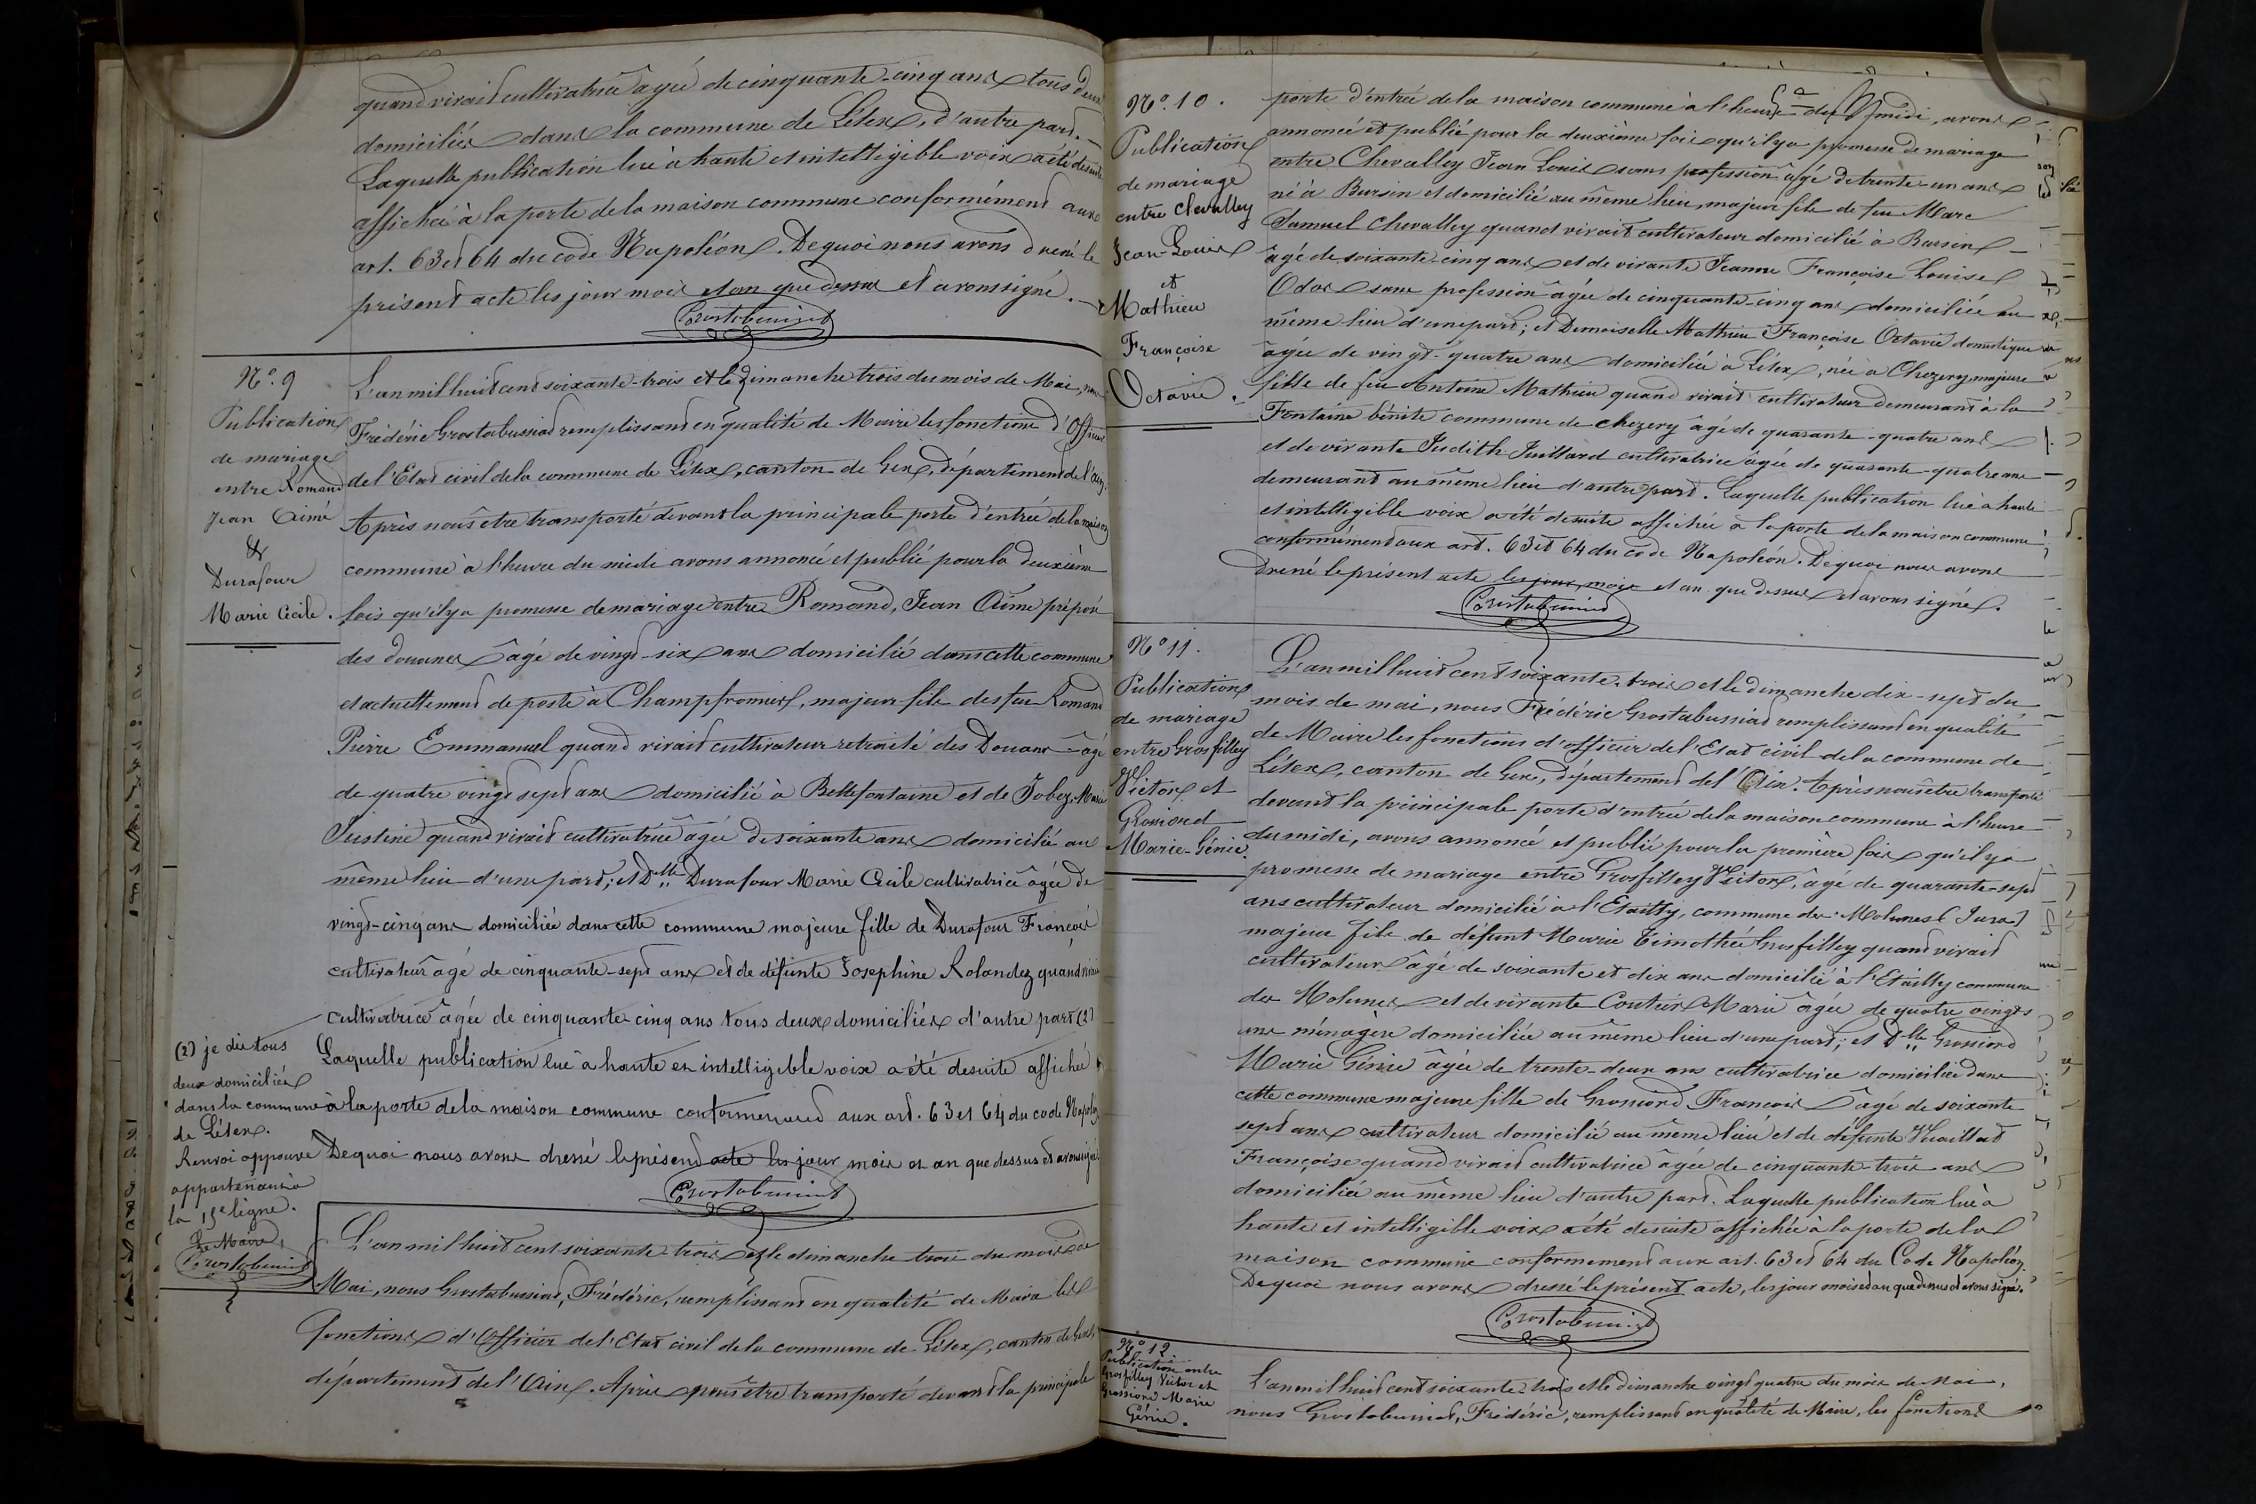 quand vivait cultivatrice âgée de cinquante-cinq ans tous deux
domiciliés dans la commune de Lélex, d'autre part.
Laquelle publication lue à haute et intelligible voix a été de suite
affichée à la porte de la maison commune conformément aux
art. 63 et 64 du code Napoléon. De quoi nous avons dressé le
présent acte les jour mois et an que dessus et avons signé.
Grostabussiat
N°. 9
Publication
de mariage
entre Romand
Jean Aimé
&
Durafour
Marie Cécile.
L'an mil huit cent soixante-trois et le dimanche trois du mois de Mai, nous
Frédéric Grostabussiat remplissant en qualité de Maire les fonctions d'Officier
de l'Etat civil de la commune de Lélex, canton de Gex, département de l'Ain.
Après nous être transporté devant la principale porte d'entrée de la maison
commune à l'heure du midi avons annoncé et publié pour la deuxième
fois qu'il y a promesse de mariage entre Romand, Jean Aimé préposé
des douanes âgé de vingt-six ans domicilié dans cette commune
et actuellement de poste à Champfromier, majeur fils des feu Romand
Pierre Emmanuel quand vivait cultivateur retraité des Douanes âgé
de quatre vingt sept ans domicilié à Bellefontaine et de Jobez, Marie
Justine quand vivait cultivatrice âgée de soixante ans domiciliée au
même lieu d'une part; et Dlle Durafour Marie Cécile cultivatrice âgée de
vingt-cinq ans domiciliée dans cette commune majeure fille de Durafour François
cultivateur âgé de cinquante-sept ans et de défunte Josephine Rolandez quand vivait
cultivatrice âgée de cinquante-cinq ans tous deux domiciliés d'autre part (2)
Laquelle publication lue à haute et intelligible voix a été de suite affichée
à la porte de la maison commune conformément aux art. 63 et 64 du code Napoléon
De quoi nous avons dressé le présent acte les jour, mois et an que dessus et avons signé
Grostabussiat
(2) je dis tous
deux domiciliés
dans la commune
de Lélex.
Renvoi approuvé
appartenant à
la 15e ligne.
Le Maire,
Grostabussiat
L'an mil huit cent soixante-trois et le dimanche trois du mois de
Mai, nous Grostabussiat, Frédéric, remplissant en qualité de Maire les
fonctions d'Officier de l'Etat civil de la commune de Lélex, canton de Gex,
département de l'Ain. Après nous être transporté devant la principale
N°. 10.
Publication
de mariage
entre Chevalley
Jean-Louis
et
Mathieu
Françoise
Octavie.
porte d'entrée de la maison commune à l'heure de midi, avons
annoncé et publié pour la deuxième fois qu'il y a promesse de mariage
entre Chevalley Jean Louis sans profession âgé de trente-un ans
né à Bursin et domicilié au même lieu, majeur fils de feu Marc
Samuel Chevalley quand vivait cultivateur domicilié à Bursin
âgé de soixante-cinq ans et de vivante Jeanne Françoise Louise
Odos sans profession âgée de cinquante-cinq ans domiciliée au
même lieu d'une part; et Demoiselle Mathieu Françoise Octavie domestique
âgée de vingt-quatre ans domiciliée à Lélex, née à Chezery, majeure
fille de feu Antoine Mathieu quand vivait cultivateur demeurant à la
Fontaine bénite commune de Chezery âgé de quarante-quatre ans
et de vivante Judith Juillard cultivatrice âgée de quarante-quatre ans
demeurant au même lieu d'autre part. Laquelle publication lue à haute
et intelligible voix a été de suite affichée à la porte de la maison commune
conformément aux art. 63 et 64 du code Napoléon. De quoi nous avons
dressé le présent acte les jour, mois et an que dessus et avons signé.
Grostabussiat
N° 11.
Publication
de mariage
entre Grosfilley
Victor et
Grossiord
Marie-Génie.
L'an mil huit cent soixante-trois et le dimanche dix-sept du
mois de mai, nous Frédéric Grostabussiat remplissant en qualité
de Maire les fonctions d'officier de l'Etat civil de la commune de
Lélex, canton de Gex, département de l'Ain. Après nous être transporté
devant la principale porte d'entrée de la maison commune à l'heure
du midi, avons annoncé et publié pour la première fois qu'il y a
promesse de mariage entre Grosfilley Victor, âgé de quarante-sept
ans cultivateur domicilié à l'Etailly, commune des Molunes (Jura)
majeur fils de défunt Marie Timothée Grosfilley quand vivait
cultivateur âgé de soixante et dix ans domicilié à l'Etailly commune
des Molunes et de vivante Coutier Marie âgée de quatre vingts
ans ménagère domiciliée au même lieu d'une part; et Dlle Grossiord
Marie Génie âgée de trente-deux ans cultivatrice domiciliée dans
cette commune majeure fille de Grossiord François âgé de soixante
sept ans cultivateur domicilié au même lieu et de défunte Vuaillat
Françoise quand vivait cultivatrice âgée de cinquante-trois ans
domiciliée au même lieu d'autre part. Laquelle publication lue à
haute et intelligible voix a été de suite affichée à la porte de la
maison commune conformément aux art. 63 et 64 du Code Napoléon.
De quoi nous avons dressé le présent acte, les jour mois et an que dessus et avons signé.
Grostabussiat
N° 12
Publication entre
Grosfilley Victor et
Grossiord Marie
Génie.
L'an mil huit cent soixante-trois et le dimanche vingt quatre du mois de Mai,
nous Grostabussiat, Frédéric, remplissant en qualité de Maire, les fonctions